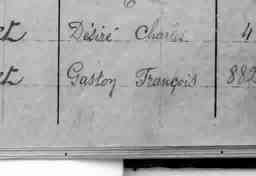 Désiré Charles 4
Gaston François 882